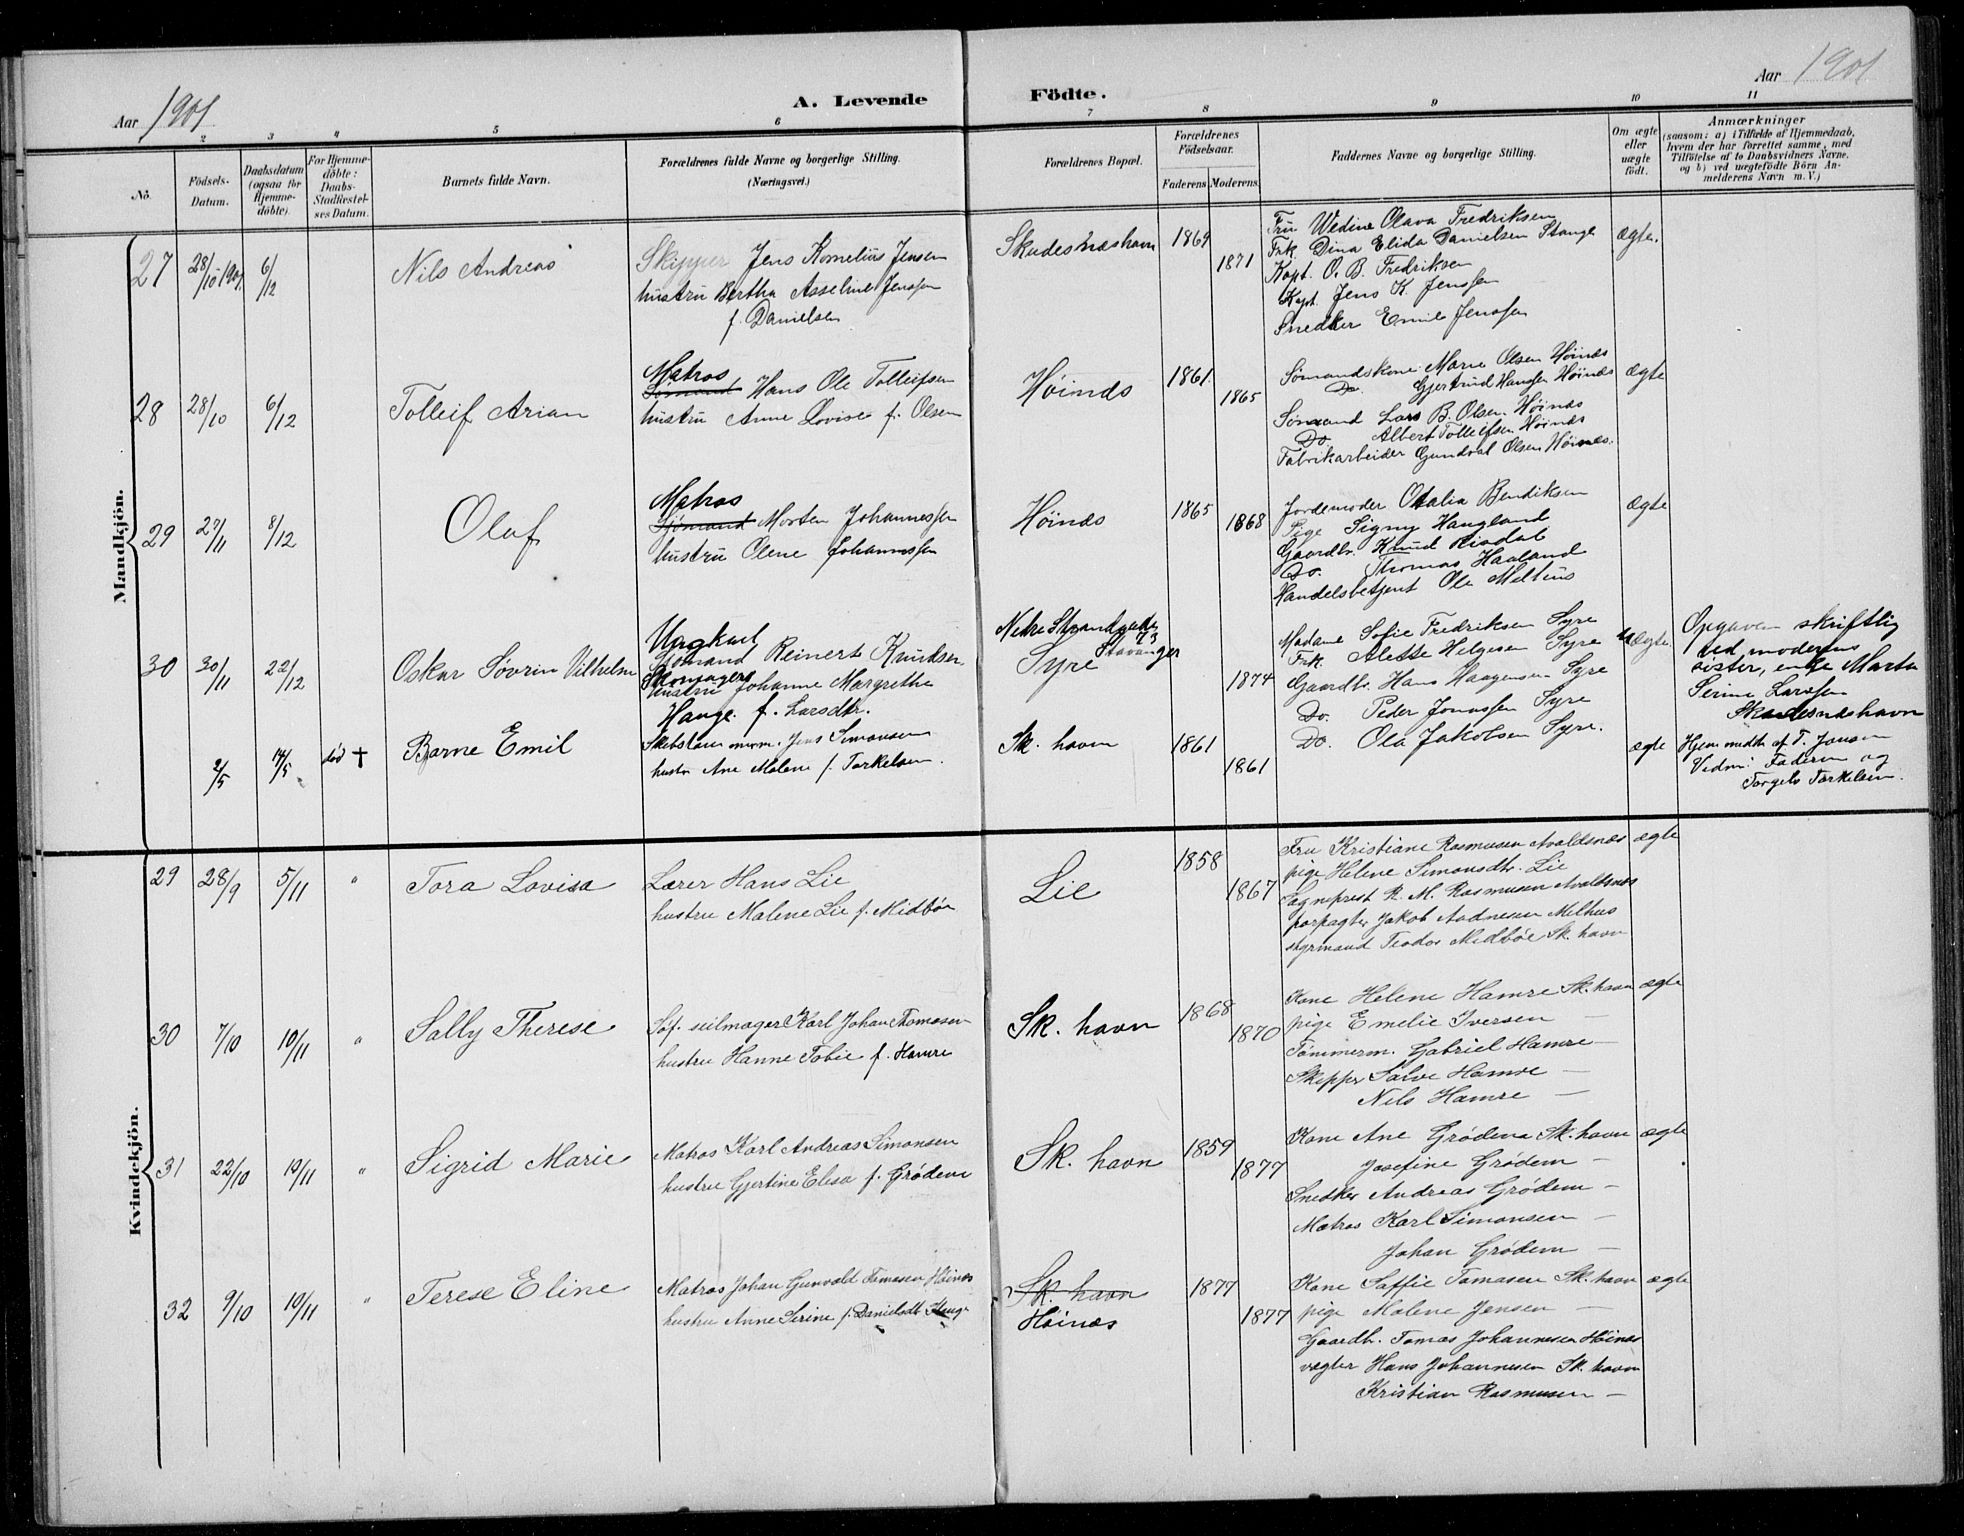 Aar 1901
A. Levende Födte.
Aar 1901
2 3 4 5 6 7 8 9 10 11
No.
Födsels-Datum.
Daabsdatum (ogsaa for Hjemmedöbte).
For Hjemmedöbte: Daabs-Stadfæstelses Datum.
Barnets fulde Navn.
Forældrenes fulde Navne og borgerlige Stilling.
(Næringsvei.)
Forældrenes Bopæl.
Forældrenes Födselsaar.
Faderens. Moderens.
Faddernes Navne og borgerlige Stilling.
Om ægte eller uægte födt.
Anmærkninger
(saasom: a) i Tilfælde af Hjemmedaab,
hvem der har forrettet samme, med
Tilföielse af to Daabsvidners Navne.
og b) ved uægtefödte Börn An-
melderens Navn m. V.)
Mandkjön.
27 28/10 1901. 6/12 Nils Andreas
Skipper Jens Kornelius Jensen
hustru Bertha Asseline Jenssen
f. Danielsen
Skudesnæshavn 1869 1871
Fru Wedine Olava Fredriksen
Frk. Dina Elida Danielsen Stange
Kapt. O. B. Fredriksen
Kapt. Jens K. Jenssen
Snedker Emil Jenssen
ægte.
28 28/10 6/12 Tolleif Arian
Matros
Sømand Hans Ole Tolleifsen
hustru Anne Lovise f. Olsen
Høinæs 1861. 1865
Sømandskone Marie Olsen Høinæs
Do. Gjertrud Hansen Høinæs
Sømand Lars B. Olsen Høinæs
Do. Albert Tolleifsen Høinæs
Fabrikarbeider Gundval Olsen Høinæs.
ægte
29 27/11 8/12 Olaf
Matros
Sjømand Morten Johannessen
hustru Olene Johannessen
Høinæs 1865 1868
Jordemoder Otalia Bendiksen
Pige Signy Haugland
Gaardbr. Knud Risdal
Do. Thomas Haaland
Handelsbetjent Ole Melhus
ægte
30 30/11 22/12 Oskar Søvrin Vilhelm
Ungkarl
Sjømand Reinert Knudsen
hustru Johanne Margrethe
Hauge. f. Larsdtr.
Nedre Strandgade 73
Stavanger
Syre
1874
Madame Sofie Fredriksen Syre
Frk. Alette Helgesen Syre
Gaardbr. Hans Haagensen Syre
Do. Peder Jonassen Syre
Do. Ola Jakobsen Syre.
uægte
Opgaven skriftlig
ved moderens
sister, enke Marta
Serine Larssen
Skudesnæshavn
2/5 14/5 død † Barne Emil
Jens Simonsen
hustr. Ane Malene f. Torkelsen.
Sk. havn 1861 1861
ægte
Hjemmedøbt af T. Jonsen
Vidni: Faderen og
Torgels Torkelsen.
Kvindekjön.
29 28/9 5/11 " Tora Lovisa
Lærer Hans Lie
hustru Malene Lie f. Midbøe
Lie 1858 1867
Fru Kristiane Rasmusen Avaldsnæs
pige Helene Simonsdtr. Lie
Sogneprest R. M. Rasmusen Avaldsnæs
forpagter Jakob Aadnesen Melhus
styrmand Teodor Midbøe Sk. havn
ægte
30 7/10 10/11 " Sally Therese
Sof. seilmager Karl Johan Thomasen
hustru Hanne Tobie f. Hamre
Sk. havn 1868 1870
Kone Helene Hamre Sk. havn
pige Emelie Iversen —
Tømmerm. Gabriel Hamre —
Skipper Salve Hamre —
Nils Hamre —
ægte
31 22/10 10/11 " Sigrid Marie
Matros Karl Andreas Simonsen
hustru Gjertine Elisa f. Grødem
Sk. havn 1859 1877
Kone Ane Grødem Sk. havn
Josefine Grødem —
Snedker Andreas Grødem —
Matros Karl Simonsen —
Johan Grødem —
ægte
32 9/10 10/11 " Terese Eline
Matros Johan Gunvald Tomasen Høines
hustru Anne Serine f. Danielsdt. Hauge
Sk. havn
Høinæs
1877 1877
Kone Saffie Tomasen Sk. havn
pige Malene Jensen —
Gaardb. Tomas Johannesen Høines
vægter Hans Johannesen Sk. havn
Kristian Rasmusen —
ægte